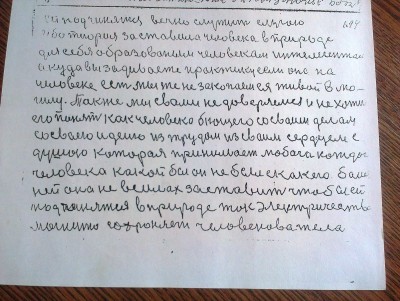 подчиняется вечно служит слугою 684
которая заставила человека в природе
для себя образованым человекам интелегентам
а куда вы задиваете практику если она на
человеке есть мы же не закопаемся живой в мо-
гилу. Также мы с вами не доверяемся и не хотим
его понять как человека бьющего со своим делам
со своего идеею из трудом из своим сердцем с
душою которая принимает любога кождо
человека какой бы он не был с какого. Бальше
ней она не в силах заставить чтобы ей
подчинятся в природе ток электричества
магнито сохроняет человека тела